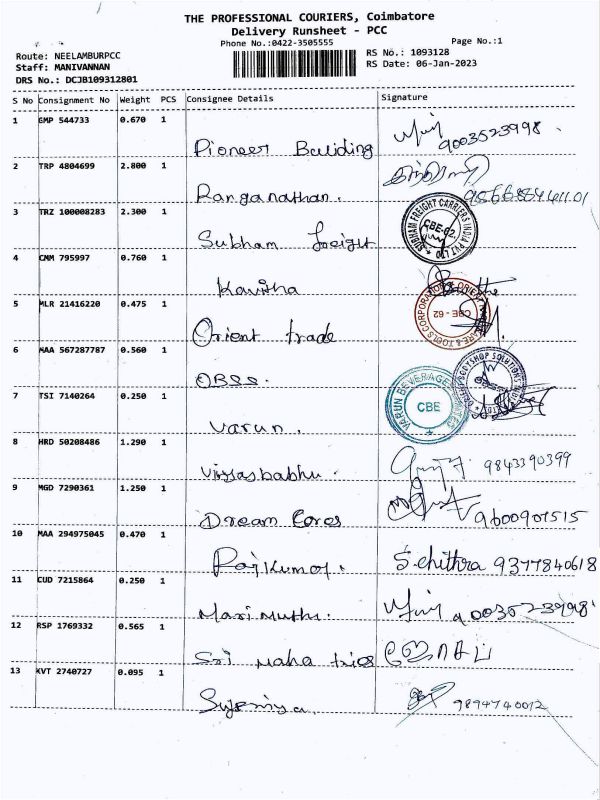 THE PROFESSIONAL COURIERS, Coimbatore
Delivery Runsheet - PCC
Phone No.:0422-3505555 Page No.:1
Route: NEELAMBURPCC RS No.: 1093128
Staff: MANIVANNAN RS Date: 06-Jan-2023
DRS No.: DCJB109312801
S No Consignment No Weight PCS Consignee Details Signature
1 GMP 544733 0.670 1
Pioneer Building 9003523998
2 TRP 4804699 2.800 1
Ranganathan.
3 TRZ 100008283 2.300 1
Subham freight SUBHAM FREIGHT CARRIERS INDIA PVT LTD CBE-62.
4 CMM 795997 0.760 1
Kavitha
5 MLR 21416220 0.475 1
Orient trade CBE - 62
6 MAA 567287787 0.560 1
OBSS.
7 TSI 7140264 0.250 1
Varun. VARUN BEVERAGES LIMITED CBE
8 HRD 50208486 1.290 1
9843390399
9 MGD 7290361 1.250 1
Dream Cores 9600901515
10 MAA 294975045 0.470 1
Rajkumar. S.chithra 9377840618
11 CUD 7215864 0.250 1
Marimuthu. 9003523998
12 RSP 1769332 0.565 1
Sri Maha
13 KVT 2740727 0.095 1
9894740012